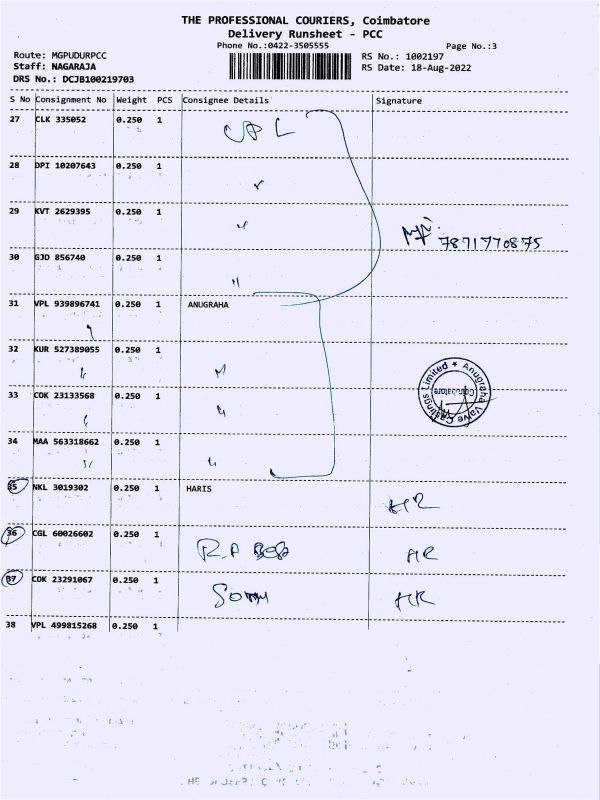 THE PROFESSIONAL COURIERS, Coimbatore
Delivery Runsheet - PCC
Phone No.:0422-3505555
Page No.:3
Route: MGPUDURPCC
RS No.: 1002197
Staff: NAGARAJA
RS Date: 18-Aug-2022
DRS No.: DCJB100219703
S No Consignment No Weight PCS Consignee Details Signature
27 CLK 335052 0.250 1
28 DPI 10207643 0.250 1
29 KVT 2629395 0.250 1
7871770875
30 GJD 856740 0.250 1
31 VPL 939896741 0.250 1 ANUGRAHA
32 KUR 527389055 0.250 1
Anugraha Valve Castings Limited
Coimbatore
33 COK 23133568 0.250 1
34 MAA 563318662 0.250 1
35 NKL 3019302 0.250 1 HARIS
HR
36 CGL 60026602 0.250 1
HR
37 COK 23291067 0.250 1
HR
38 VPL 499815268 0.250 1